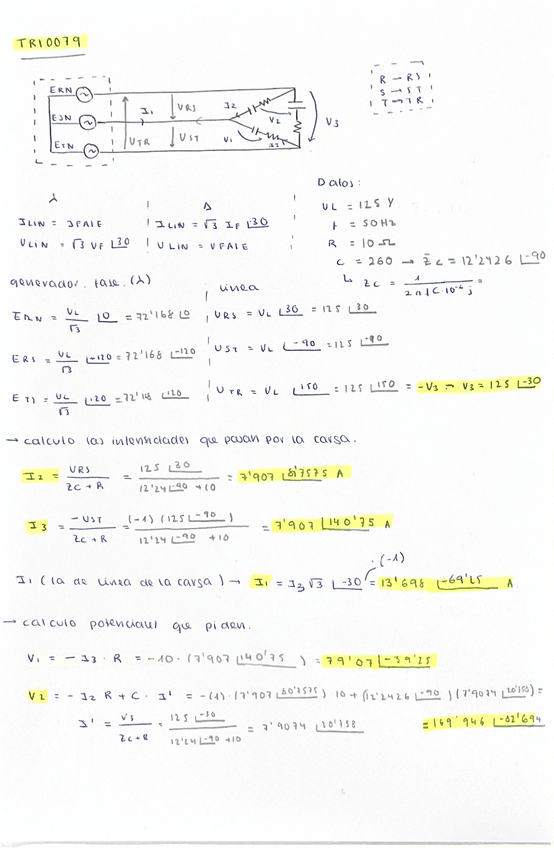 TRI0079
ERN
ESN
ETN
I1
URS
UST
UTR
I2
V2
V1
I3
V3
R → RS
S → ST
T → TR
Datos:
UL = 125 V
f = 50Hz
R = 10 Ω
C = 260 → Z̄c = 12'2426 ∟-90
↳ Zc = 1 / 2πfC·10⁻⁶ j =
⅄
ILIN = IFASE
ULIN = √3 UF ∟30
Δ
ILIN = √3 IF ∟30
ULIN = UFASE
generador. fase. (⅄)
línea
ERN = UL/√3 ∟0 = 72'168 ∟0
URS = UL ∟30 = 125 ∟30
ERS = UL/√3 ∟-120 = 72'168 ∟-120
UST = UL ∟-90 = 125 ∟-90
UL/√3 ∟120 = ∟120
UTR = UL ∟150 = 125 ∟150 = -V3 → V3 = 125 ∟-30
→ calculo las intensidades que pasan por la carga.
I2 = URS / Zc + R = 125 ∟30 / 12'24 ∟-90 + 10 = 7'907 A
I3 = -UST / Zc + R = (-1) (125 ∟-90) / 12'24 ∟-90 + 10 = 7'907 ∟140'75 A
· (-1)
I1 (la de línea de la carga) → I1 = I3 √3 ∟-30 = 13'698 ∟-69'25 A
→ calculo potenciales que piden.
V1 = - I3 · R = -10 · (7'907 ∟140'75) = 79'07 ∟-39'25
V2 = - I2 R + C · I' = -(1) · (7'907 ) 10 + (12'2426 ∟-90) (7'9074 ) =
I' = V3 / Zc + R = 125 ∟-30 / 12'24 ∟-90 + 10 = 7'9074 ∟20'758